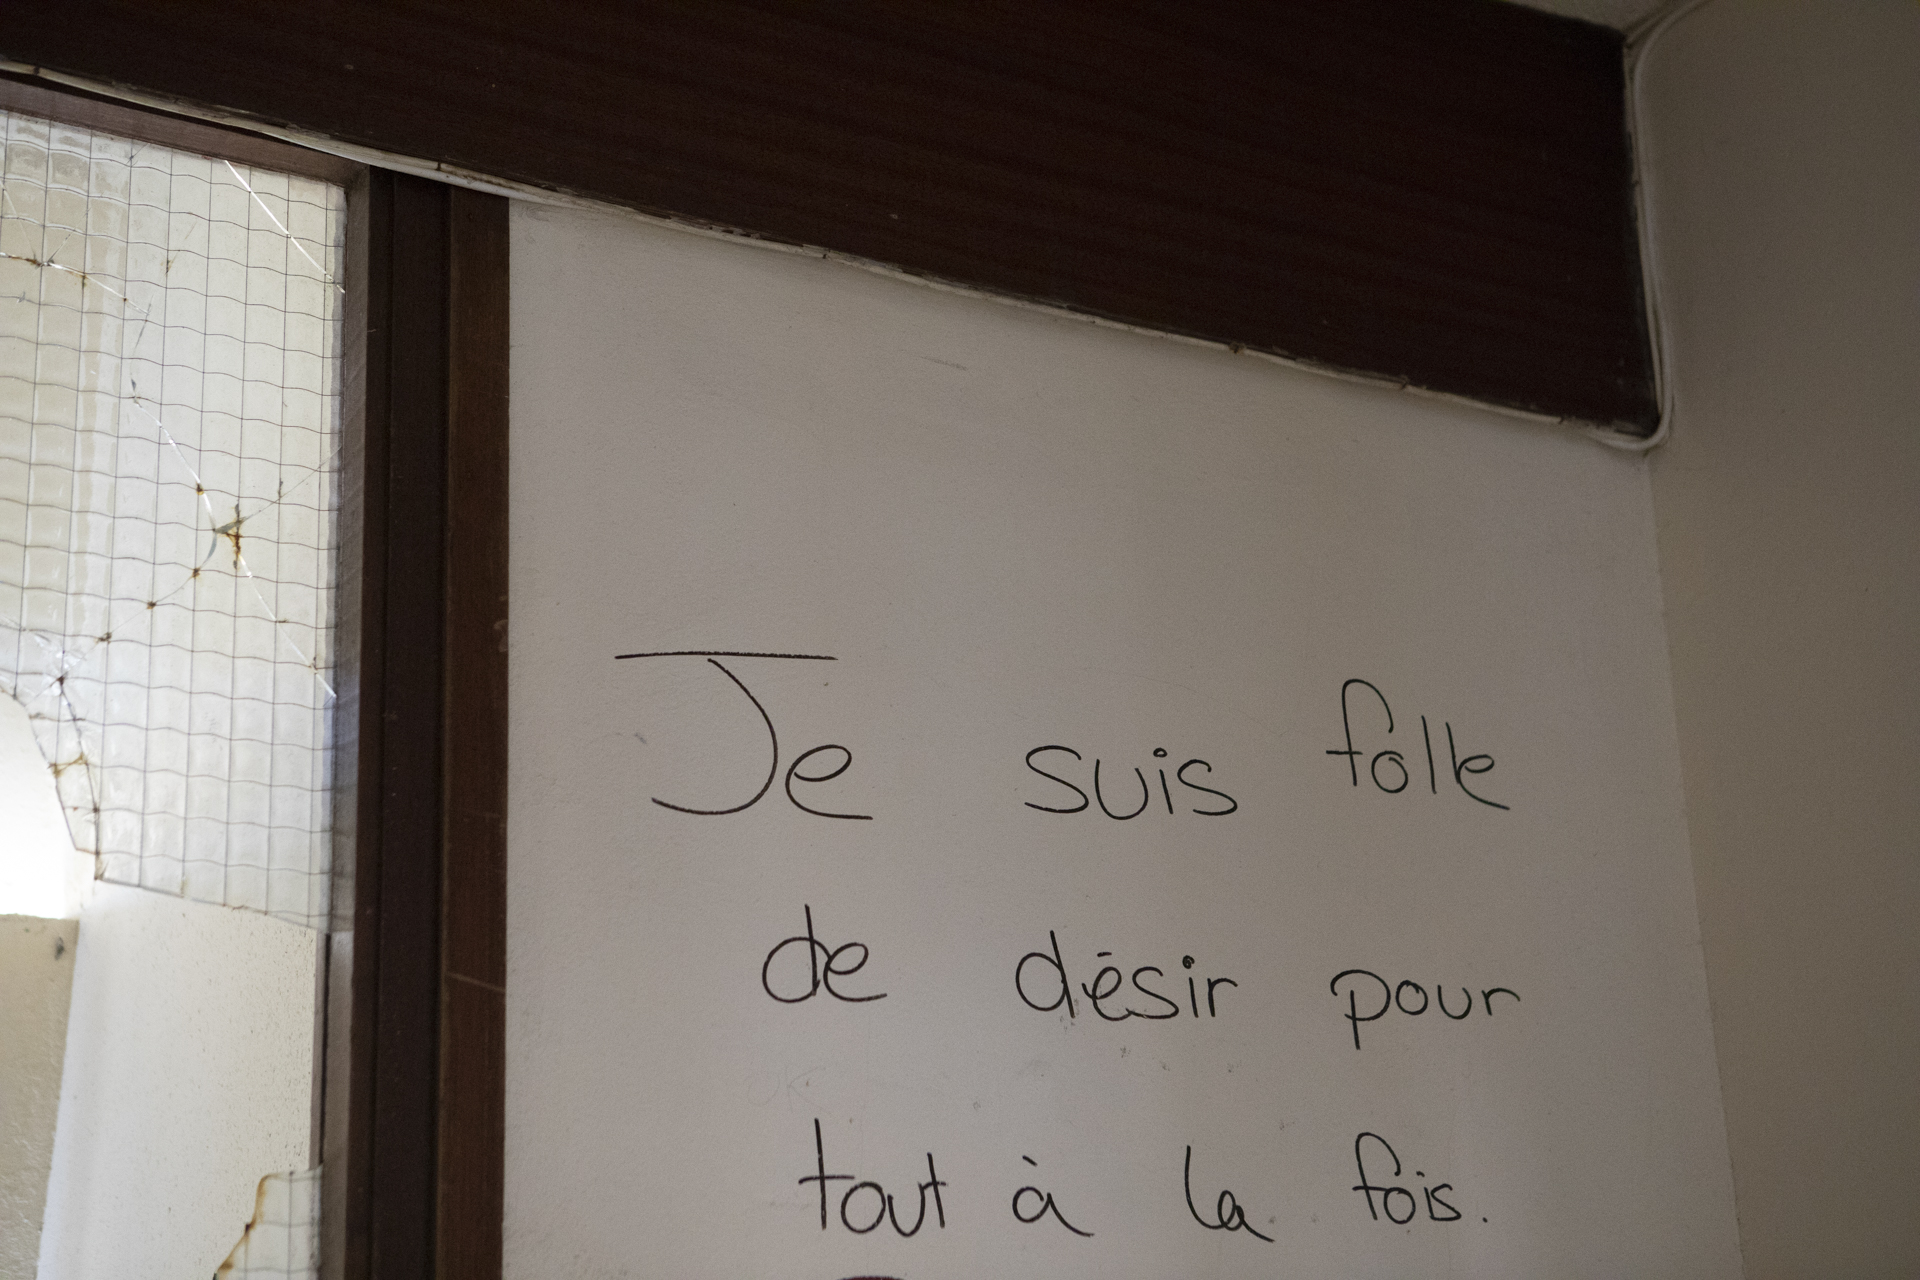 Je suis folle
de désir pour
tout à la fois.